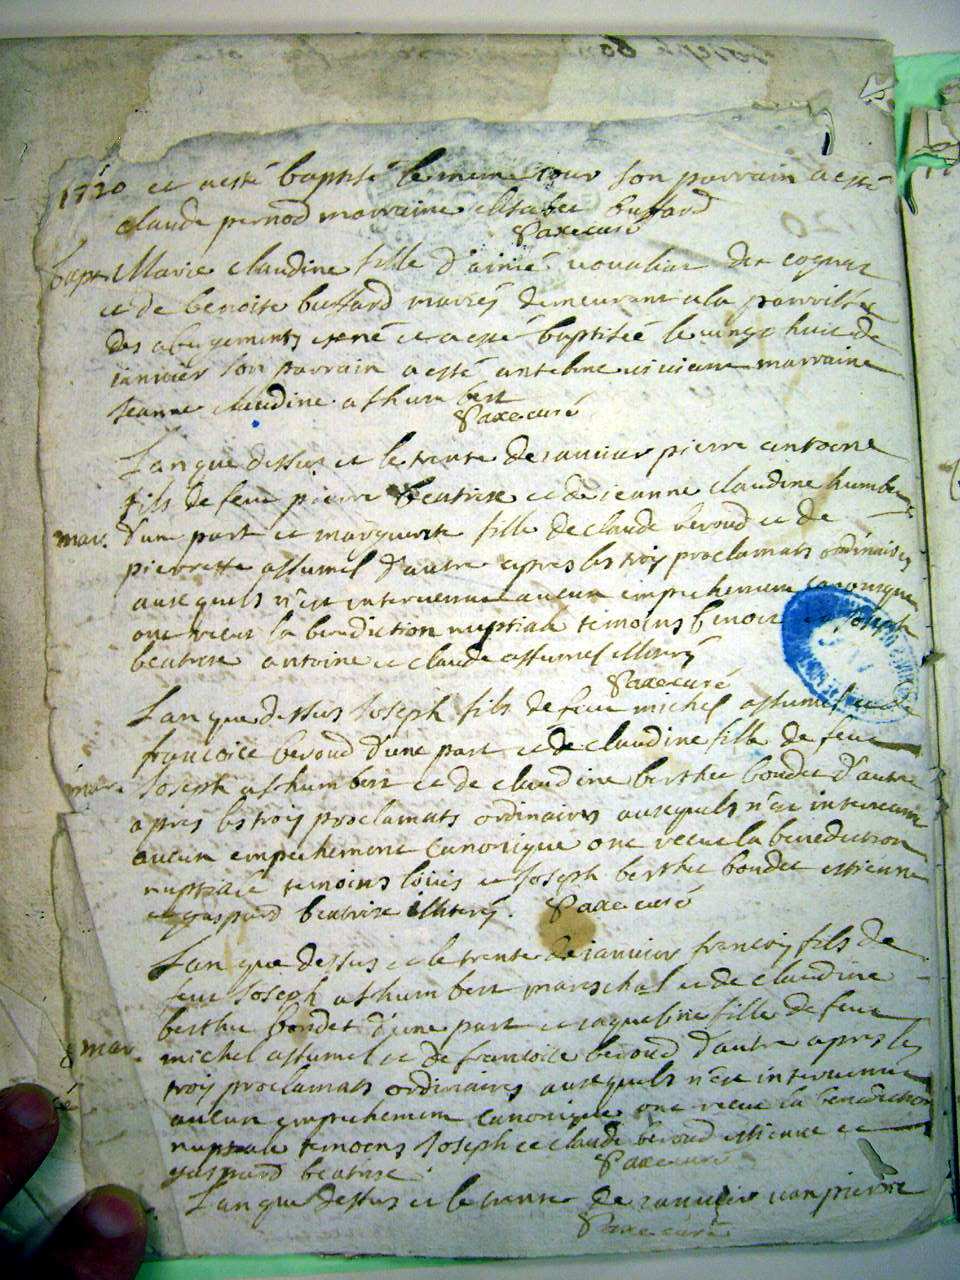 1720 et a esté baptisé le meme iour son parrain a esté
claude pernod marraine elisabet buffard
Paxe curé
bapt. Marie claudine fille d'aimé de cognat
et de benoite buffard mariés demeurant a la parroisse
des abergements et a esté baptisée le vingt huit de
ianvier son parrain a esté antelme viviam marraine
Jeanne claudine ashumbert
Paxe curé
Lan que dessus et le trente de ianvier pierre antoine
fils de feu pierre beatrise et de ieanne claudine humber
mar. d'une part et marguerite fille de claude beroud et de
pierrette assumel d'autre apres les trois proclamats ordinaires
ausquels n'est intervenu aucun empechement canonique
ont receu la benediction nuptiale temoins benoit et Joseph
beatrise antoine et claude assumel illiterés
Paxe curé
Lan que dessus Joseph fils de feu michel assumel et de
francoise beroud d'une part et de claudine fille de feu
mar. Joseph ashumbert et de claudine berthet boudet d'autre
apres les trois proclamats ordinaires ausquels n'est intervenu
aucun empechement canonique ont receu la benediction
nuptiale temoins louis et Joseph berthet bondet estienne
et gaspard beatrise illiterés. Paxe curé
Lan que dessus et le trente de ianvier francois fils de
feu Joseph ashumbert mareschal et de claudine
berthet bondet d'une part et iaqueline fille de feu
mar. michel assumel et de francoise beroud d'autre apres les
trois proclamats ordinaires ausquels n'est intervenu
aucun empechement canonique ont receu la benediction
nuptiale temoins Joseph et claude beroud estienne et
gaspard beatrise
Paxe curé
Lan que dessus et le trente de ianvier iean pierre
Paxe curé